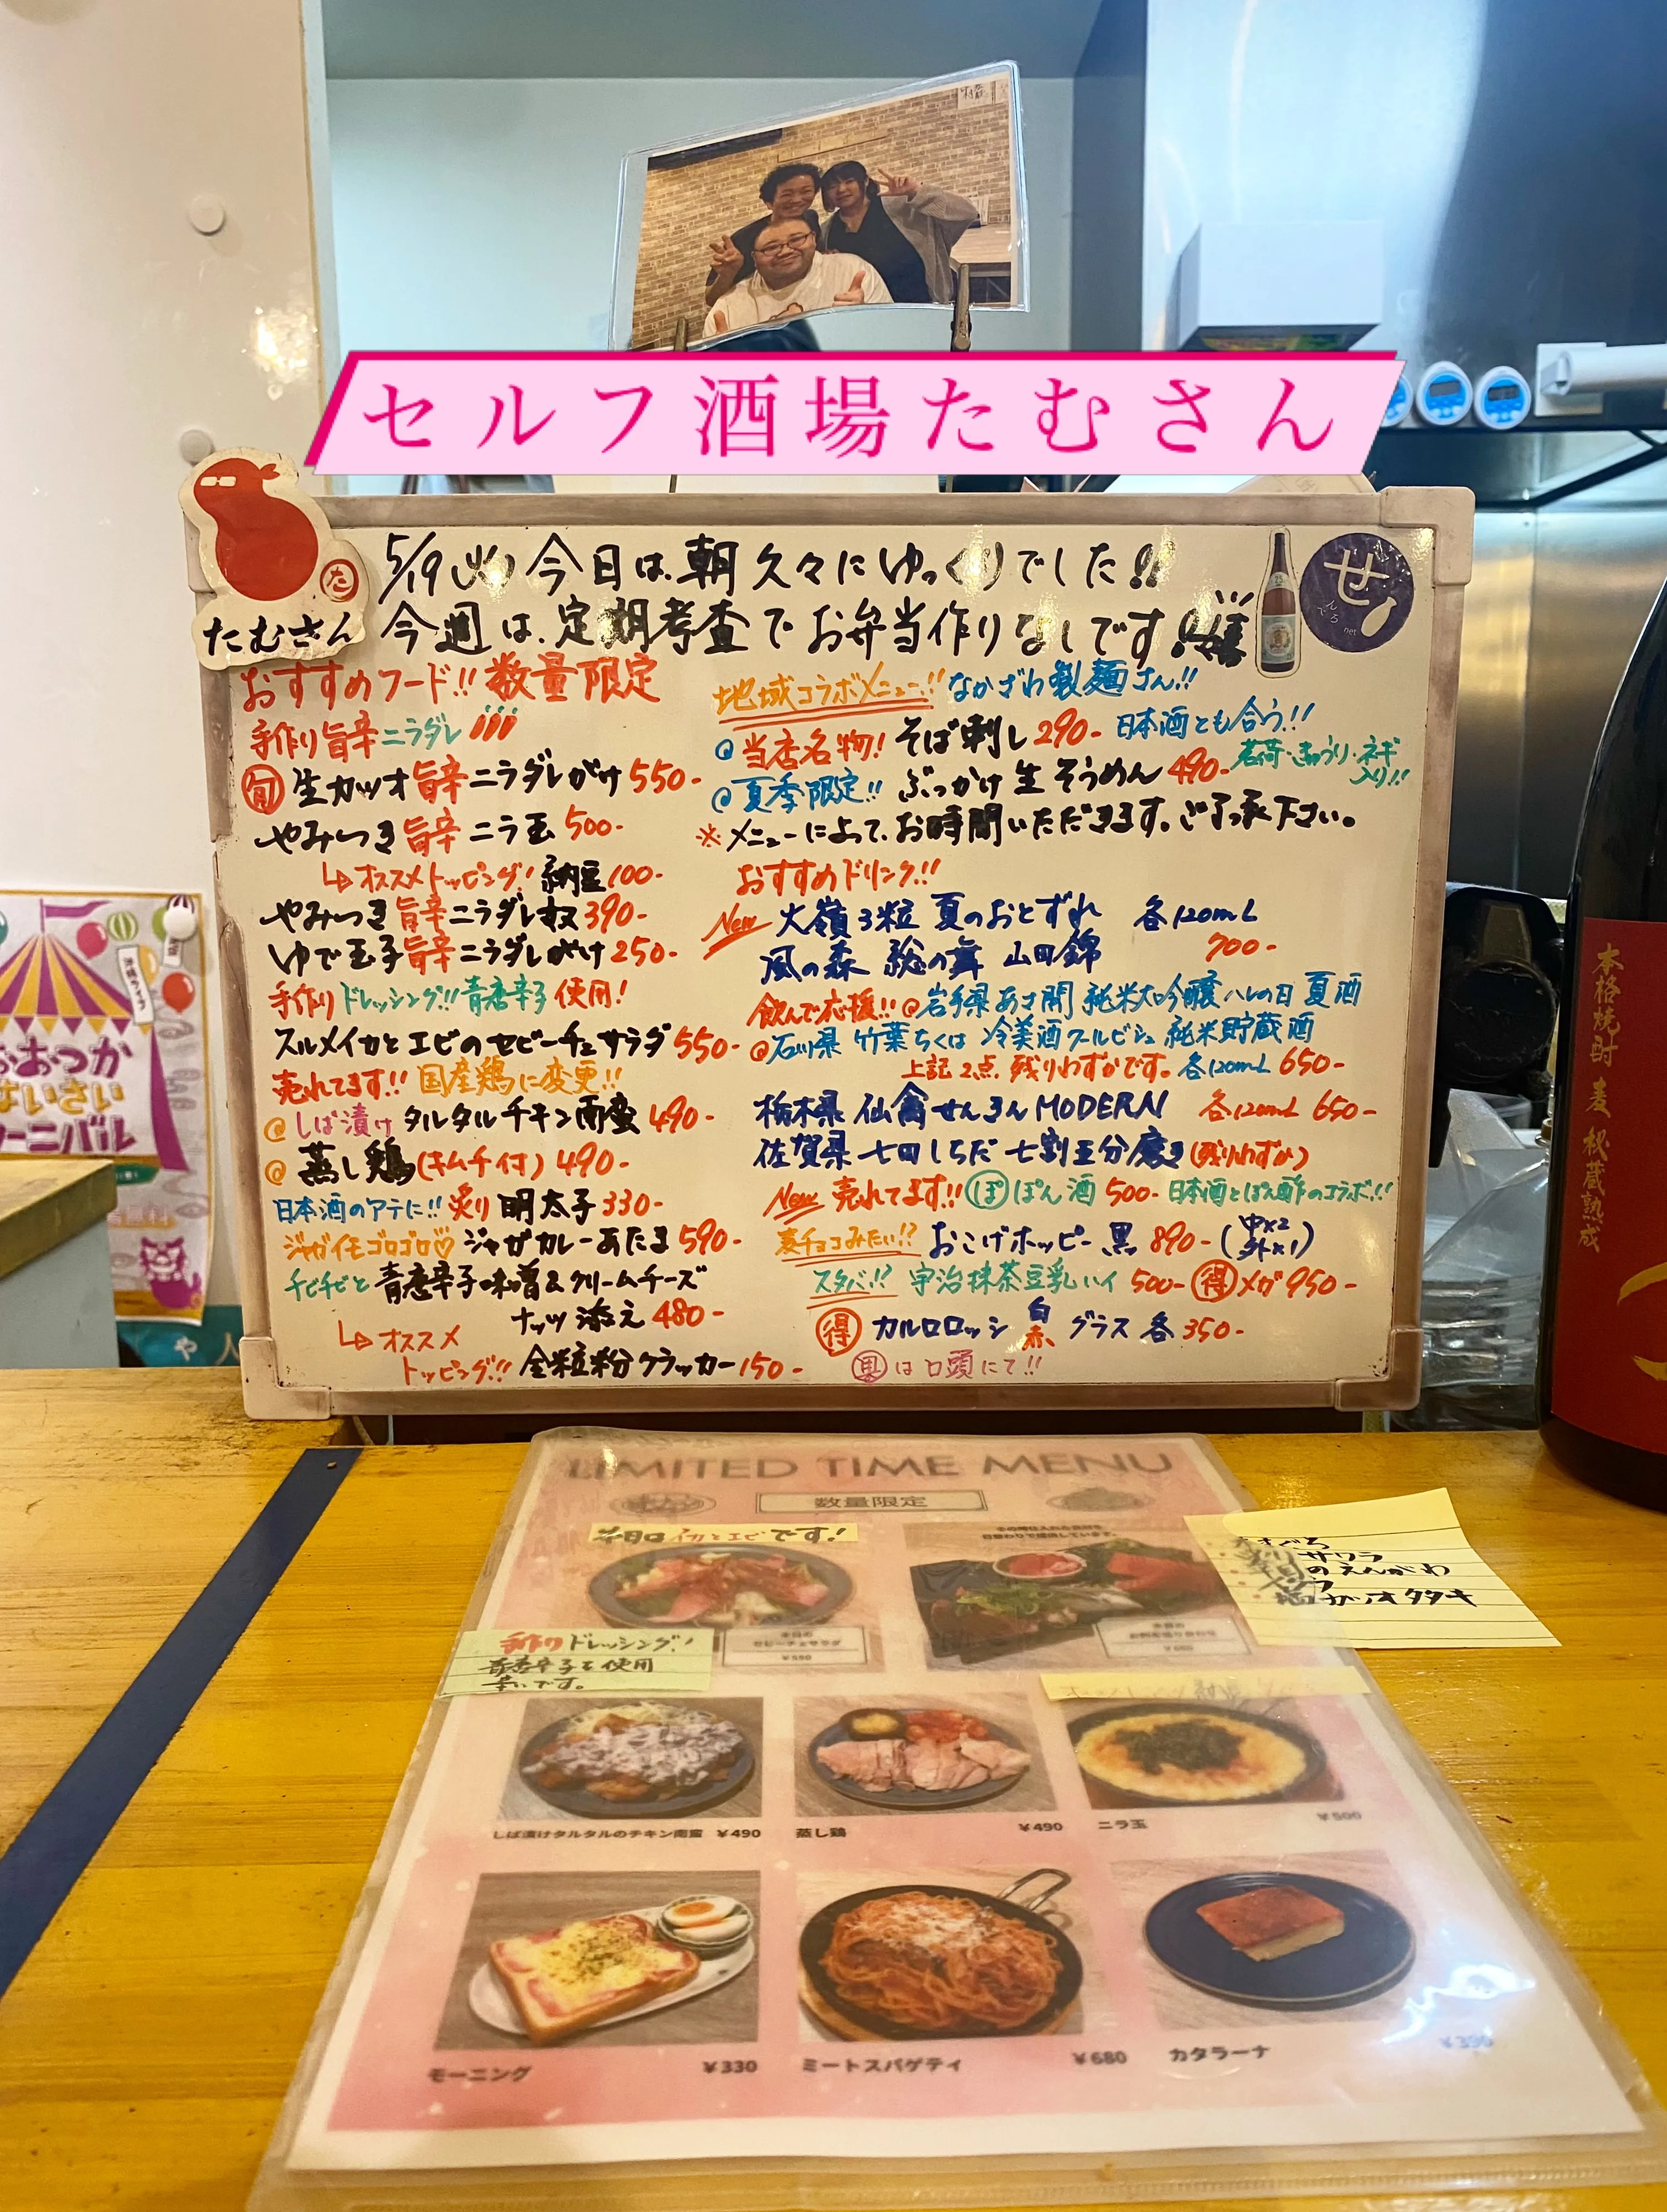 セルフ酒場たむさん
たむさん
た
せ
5/19(火) 今日は、朝久々にゆっくりでした!!
今週は、定期考査でお弁当作りなしです!!
おすすめフード!! 数量限定
手作り旨辛ニラダレ
旬 生カツオ旨辛ニラダレがけ 550-
やみつき旨辛ニラ玉 500-
↳オススメトッピング! 納豆100-
やみつき旨辛ニラダレ奴 390-
ゆで玉子旨辛ニラダレがけ 250-
手作りドレッシング!!青唐辛子使用!
スルメイカとエビのセビーチェサラダ 550-
売れてます!! 国産鶏に変更!!
@しば漬けタルタルチキン南蛮 490-
@蒸し鶏(キムチ付) 490-
日本酒のアテに!! 炙り明太子 330-
ジャガイモゴロゴロ♡ジャガカレーあたま 590-
チビチビと青唐辛子味噌&クリームチーズ
ナッツ添え 480-
↳オススメ
トッピング!! 全粒粉クラッカー150-
地域コラボメニュー!! なかざわ製麺さん!!
@当店名物! そば刺し 290- 日本酒とも合う!!
@夏季限定!! ぶっかけ生そうめん 490- 茗荷・きゅうり・ネギ入り!!
※メニューによって、お時間いただきます。ご了承下さい。
おすすめドリンク!!
New 大嶺3粒 夏のおとずれ 各120mL
風の森 総の舞 山田錦 700-
飲んで応援!!@岩手県あさ開 純米大吟醸 ハレの日 夏酒
@石川県 竹葉ちくは 冷美酒クールビシュ 純米貯蔵酒
上記2点、残りわずかです。各120mL 650-
栃木県 仙禽せんきんMODERN 各120mL 650-
佐賀県 七田しちだ 七割五分磨き(残りわずか)
New 売れてます!! ぽ ぽん酒 500- 日本酒とぽん酢のコラボ!!
麦チョコみたい!? おこげホッピー黒 890-(中×2 外×1)
スタバ!? 宇治抹茶豆乳ハイ 500- 得メガ950-
得 カルロロッシ 白 赤 グラス各350-
は口頭にて!!
本格焼酎 麦 秘蔵熟成
LIMITED TIME MENU
数量限定
本日はイカとエビです!
手作りドレッシング!
青唐辛子を使用
辛いです。
本日の
セビーチェサラダ
¥550
サワラ
のえんがわ
カツオタタキ
しば漬けタルタルのチキン南蛮 ¥490
蒸し鶏 ¥490
ニラ玉 ¥500
モーニング ¥330
ミートスパゲティ ¥680
カタラーナ ¥390